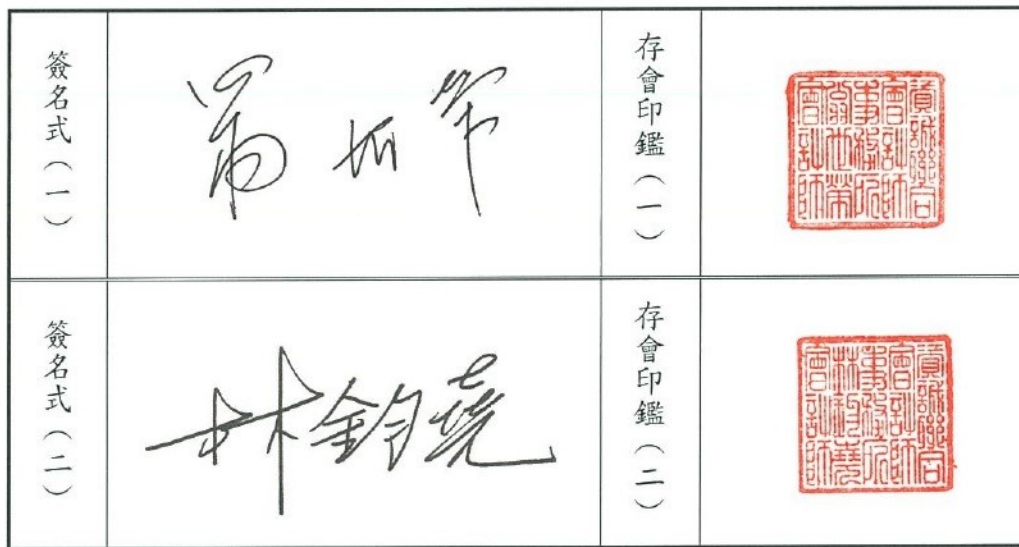 簽名式（一）
存會印鑑（一）
資誠聯合
會計師
事務所
翁世榮
會計師
簽名式（二）
林鈞堯
存會印鑑（二）
資誠聯合
會計師
事務所
林鈞堯
會計師